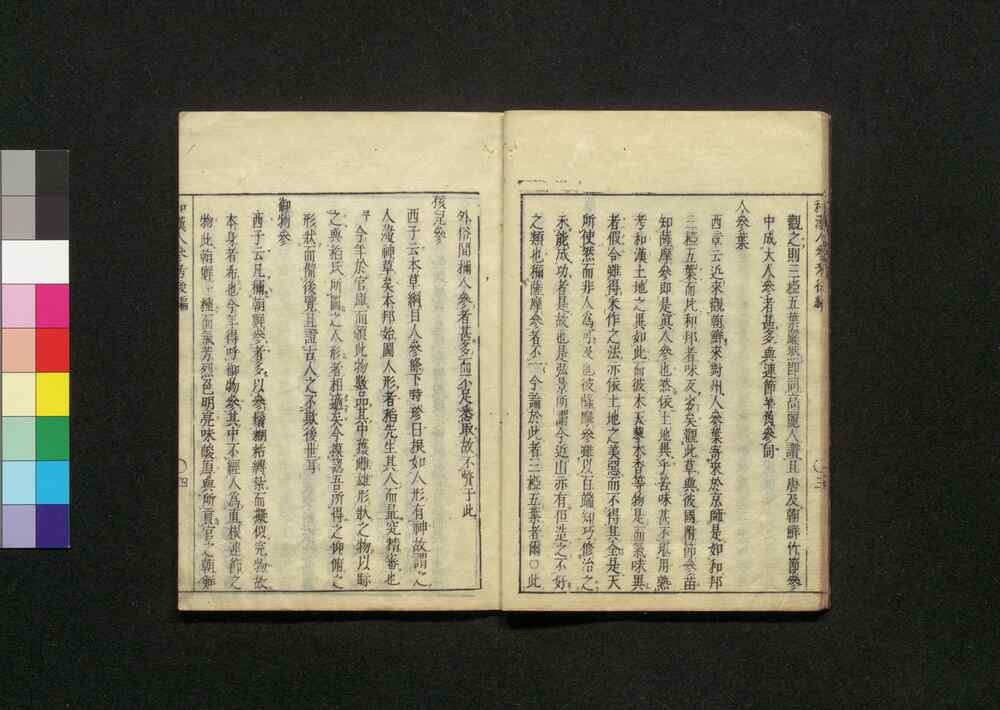 觀之則三椏五葉儼然即同高麗人讃且唐及朝鮮竹節參
中成大人參者甚多與連節羊角參同
人參葉
西章云近來觀朝鮮來對州人參葉寄來於京師是如和邦
三椏五葉而比和邦者味及劣矣觀此草與彼國附師參苗
知薩摩參即是真人參也然依土地異乎苦味甚不堪用熟
考和漢土地之異如此而彼木天蓼木香等物是而氣味異
者假令雖得釆作之法亦依土地之美惡而不得其全是天
所使然而非人為可及也彼薩摩參雖以百端知巧修治之
永能成功者是故也是弘景所謂今近山亦有但作之不好
之類也稱薩摩參者不一今論於此者三椏五葉者爾〇此
三
外俗間稱人參者甚多而不足悉取故不贅于此
孩兒參
西子云本草綱目人參條下時珍曰根如人形有神故謂之
人薓神草矣本邦始圖人形者稻先生其人而最究精審也
今年於官庫而頒此物數品其中護雌雄形狀之物以歸
之與稻氏所圖之人形者相適矣今摸認吾所得之仰俯之
形狀而備後覽且證古人之不欺後世耳
御物參
西子云凡稱朝鮮參者多以參鬚糊粘縛紮而擬似完物故
本身者希也今年得呼御物參其中不經人為直根連節之
物此朝鮮一種而氣芳烈色明亮味酸與所貢官之朝鮮
和漢人參考後編
四